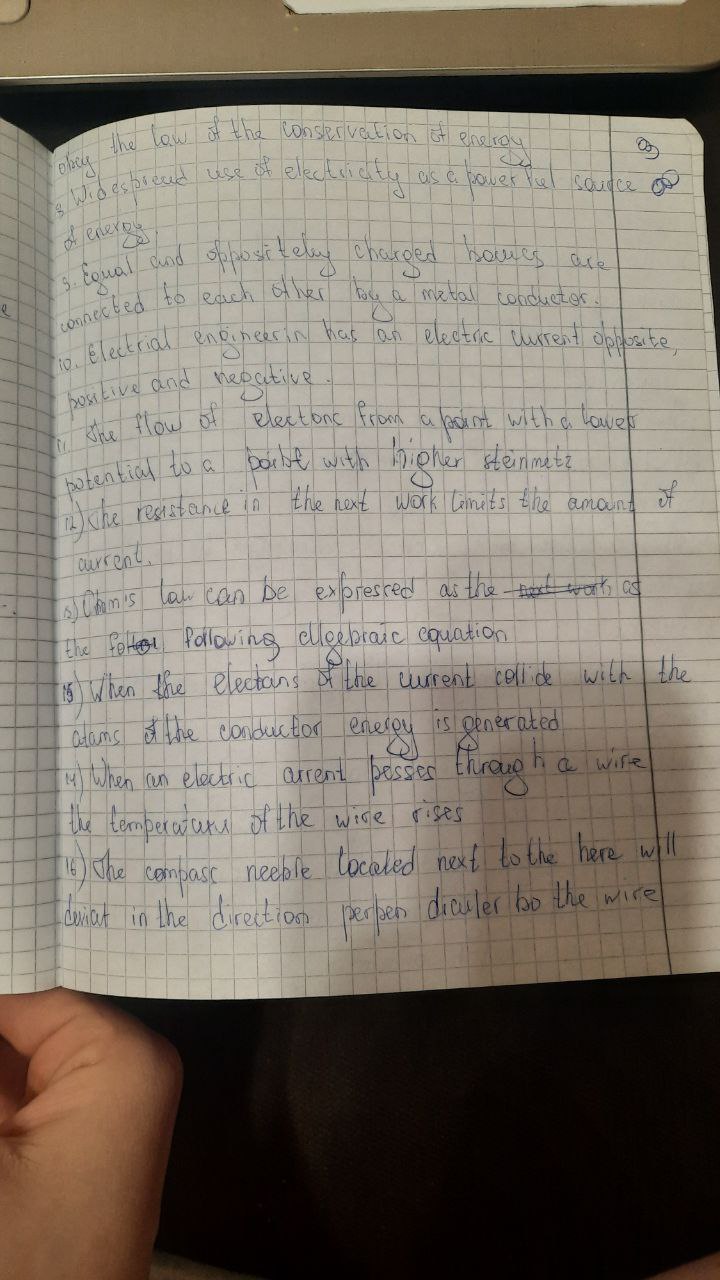 obey the law of the conservation of energy
8. Widespread use of electricity as a powerful source
of energy.
9. Equal and oppositeley charged are
connected to each other by a metal conductor.
10. Electrial engineerin has an electric current opposite,
positive and negative.
11. The flow of electonc from a point with a lower
potential to a with higher steinmetz
12) The resistance in the next work limits the amount of
current.
law can be expressed as the next work as
the following algebraic equation
15) When the electans of the current collide with the
atams of the conductor energy is generated
14) When an electric arrent pesses through a wire
the temperature of the wire rises
16) The compasc neeble located next to the here will
deviat in the direction perpen diculer to the wire